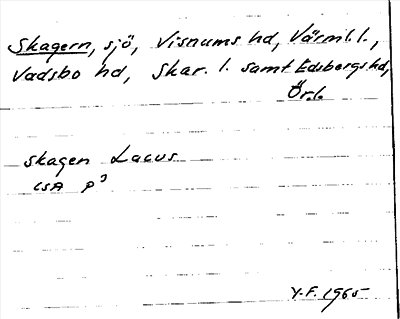 Skagern, sjö, Visnums hd, Värml. l.,
Vadsbo hd, Skar. l. samt Edsbergs hd,
Ör. l.
skagen Lacus
LSA P3
Y.F. 1965